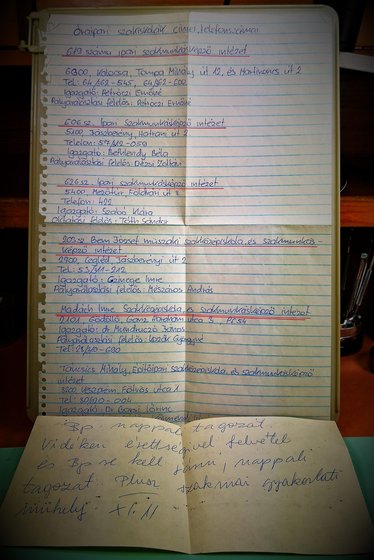 Óraipari szakiskolák címei, telefonszámai
613 számú ipari szakmunkásképző intézet
6300, Kalocsa, Tompa Mihály út 12. és Martinovics út 2
Igazgató: Petróczi Ernőné
Pályaválasztási felelős: Petróczi Ernőné
606 sz. Ipari szakmunkásképző intézet
5100, Jászberény, Hatvani út 2
Telefon: 57/12-050
Igazgató: Béla
Pályaválasztási felelős: Zoltán
626 sz. Ipari szakmunkásképző intézet
5400. Mezőtúr, Földvári út
Telefon: 422
Igazgató: Szabó Klára
Oktatási felelős: Tóth Sándor
203 sz Bem József műszaki szakközépiskola és szakmunkás-
képző intézet
2700, Cegléd, Jászberényi út 2
Tel: 53/311-212
Igazgató: Imre
Pályaválasztási felelős: Mészáros András
Madách Imre Szakközépiskola és szakmunkásképző intézet
Gödöllő, Ganz Ábrahám utca 3
Igazgató: dr János
Pályaválasztási felelős: Györgyné
Tel: 28/10-480
Táncsics Mihály, Építőipari szakközépiskola és szakmunkásképző
intézet
Veszprém, Eötvös utca 1
Igazgató: Dr
Bp. nappali tagozat.
Vidéken érettségivel felvétel
és Bp re kell járni, nappali
tagozat. Plusz szakmai gyakorlati
műhely. XI. 11